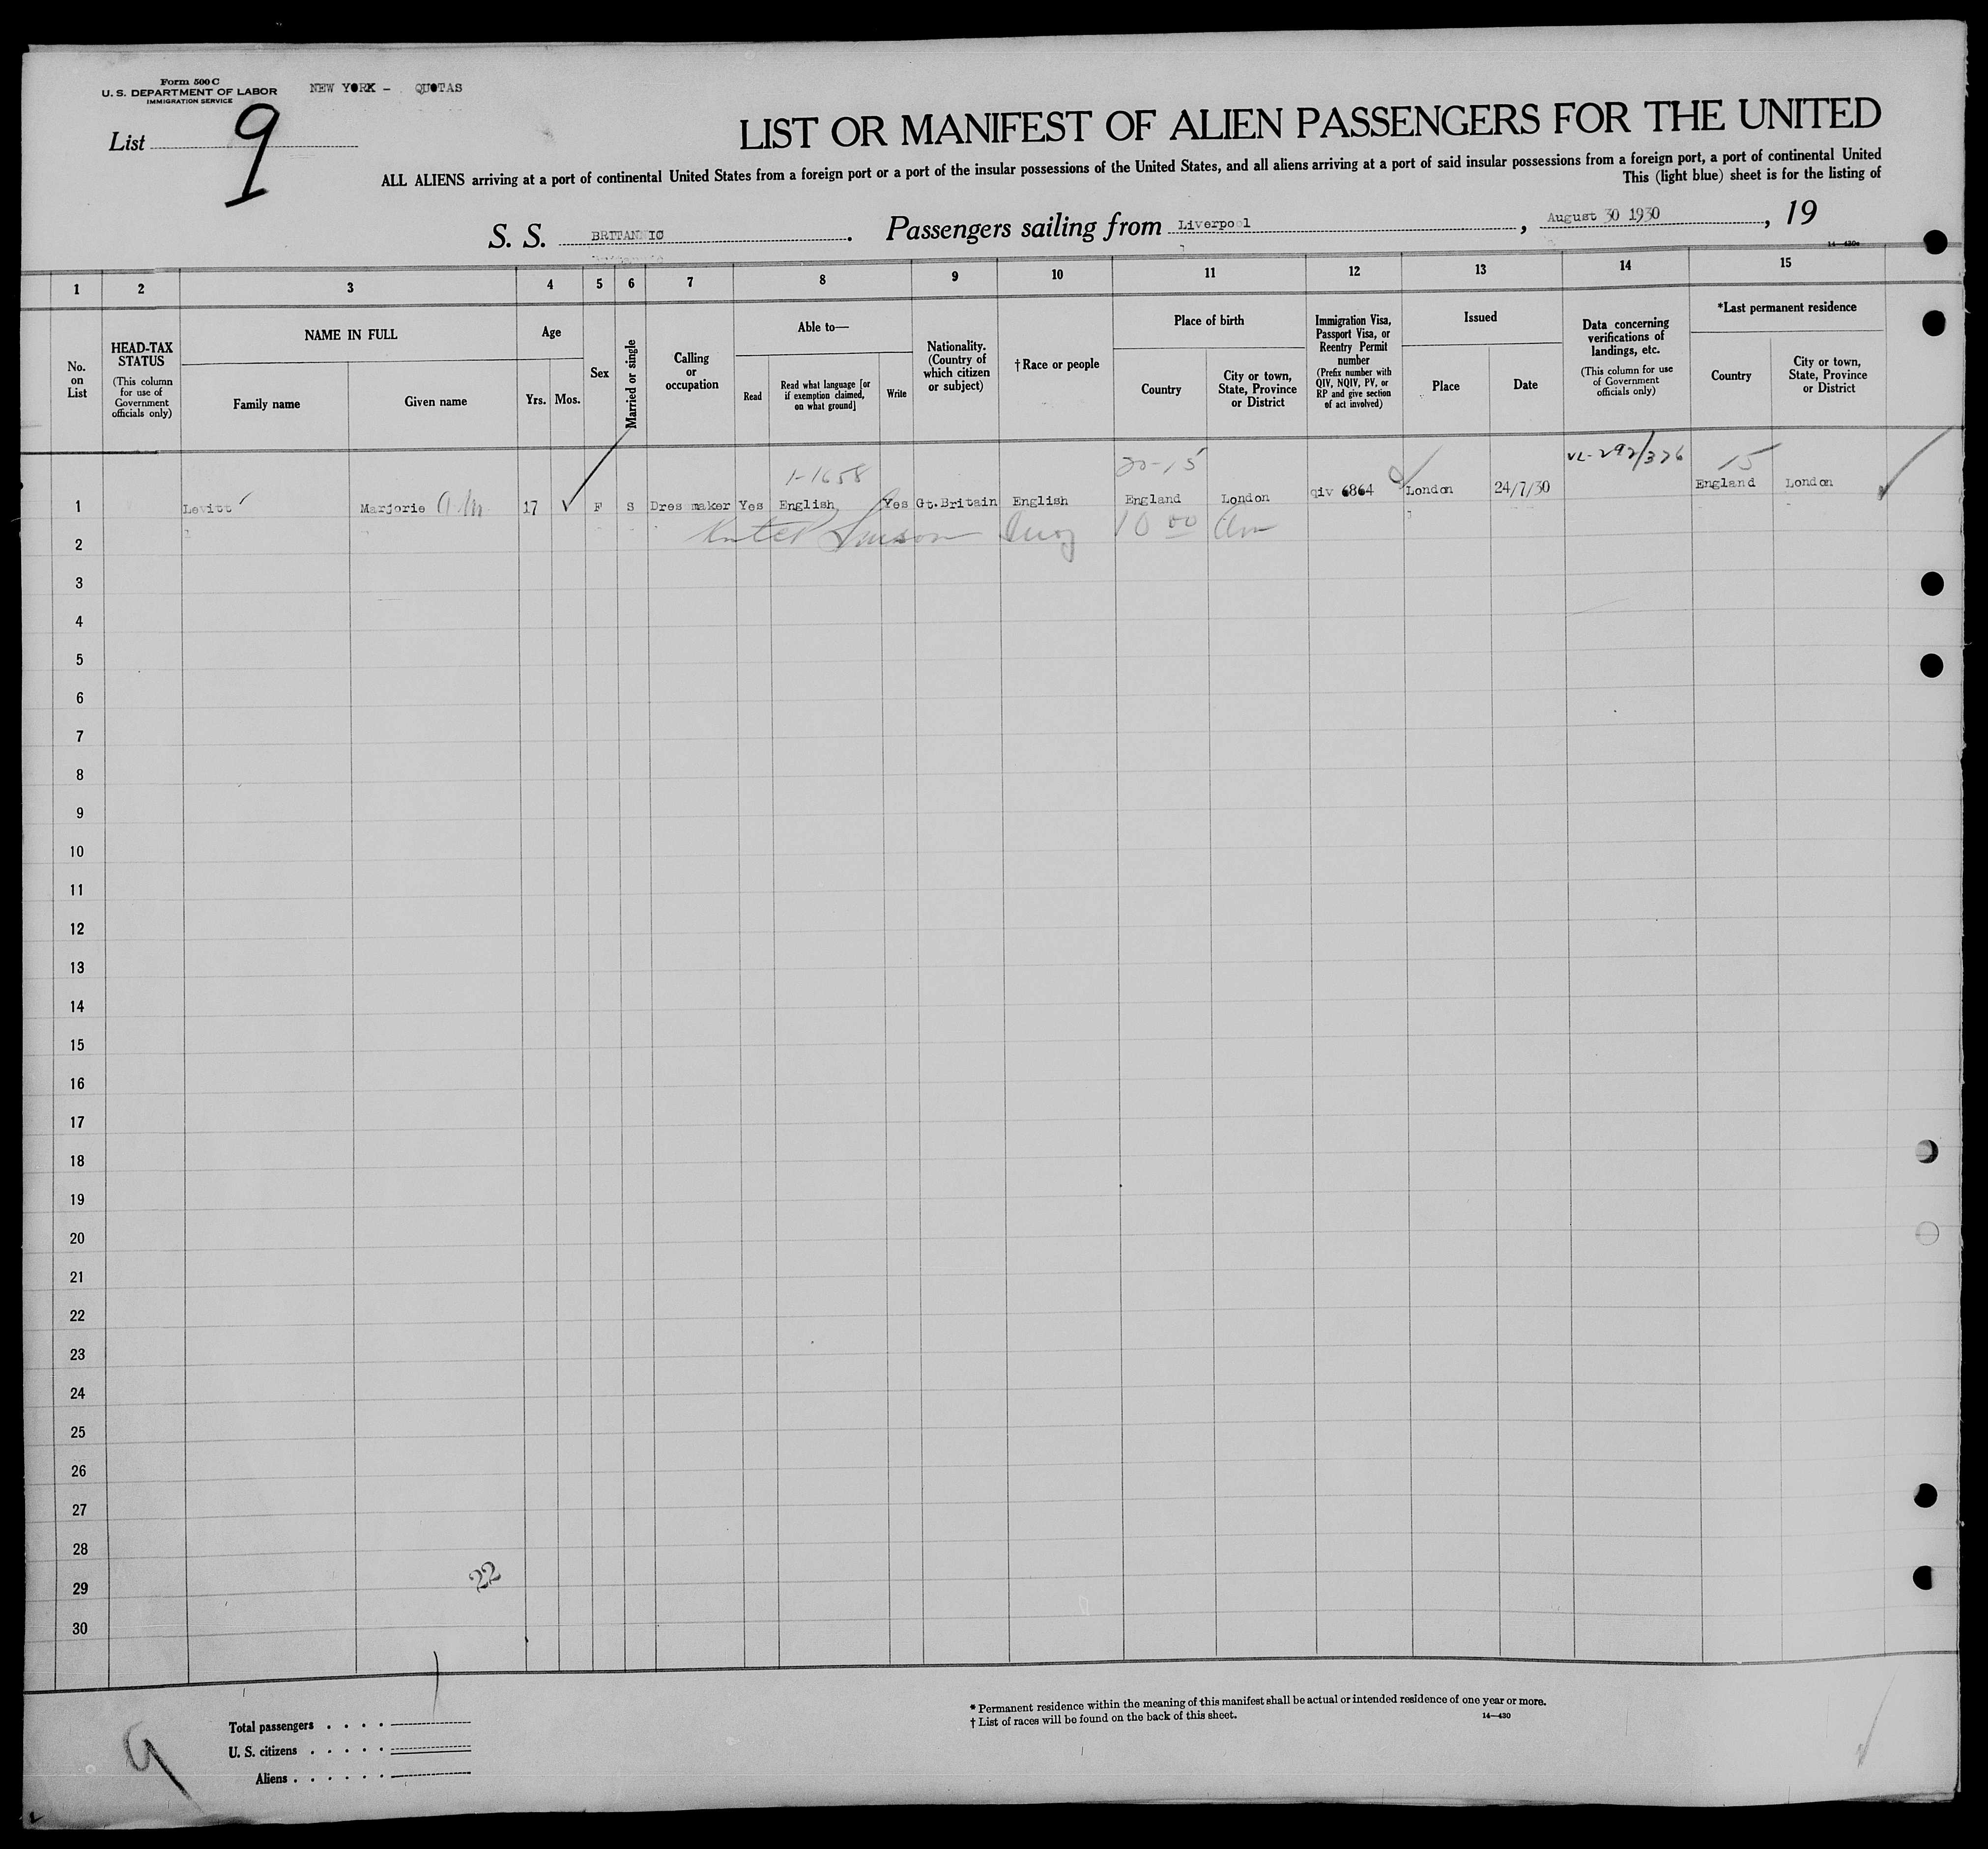 Form 500 C
U. S. DEPARTMENT OF LABOR
IMMIGRATION SERVICE
NEW YORK - QUOTAS
List 9
LIST OR MANIFEST OF ALIEN PASSENGERS FOR THE UNITED
ALL ALIENS arriving at a port of continental United States from a foreign port or a port of the insular possessions of the United States, and all aliens arriving at a port of said insular possessions from a foreign port, a port of continental United
This (light blue) sheet is for the listing of
S. S. BRITANNIC. Passengers sailing from Liverpool, August 30 1930, 19
14—430c
1 2 3 4 5 6 7 8 9 10 11 12 13 14 15
No. on List
HEAD-TAX STATUS
(This column for use of Government officials only)
NAME IN FULL
Family name
Given name
Age
Yrs.
Mos.
Sex
Married or single
Calling or occupation
Able to—
Read
Read what language [or if exemption claimed, on what ground]
Write
Nationality. (Country of which citizen or subject)
†Race or people
Place of birth
Country
City or town, State, Province or District
Immigration Visa, Passport Visa, or Reentry Permit number
(Prefix number with QIV, NQIV, PV, or RP and give section of act involved)
Issued
Place
Date
Data concerning verifications of landings, etc.
(This column for use of Government officials only)
*Last permanent residence
Country
City or town, State, Province or District
1-1658 20-15 VL-292/326 15
1 Levitt Marjorie 17 F S Dres maker Yes English Yes Gt.Britain English England London qiv 6864 London 24/7/30 England London
2 10 00
3
4
5
6
7
8
9
10
11
12
13
14
15
16
17
18
19
20
21
22
23
24
25
26
27
28
22
29
30
Total passengers . . . .
U. S. citizens . . . . .
Aliens . . . . . .
* Permanent residence within the meaning of this manifest shall be actual or intended residence of one year or more.
† List of races will be found on the back of this sheet.
14—430
9